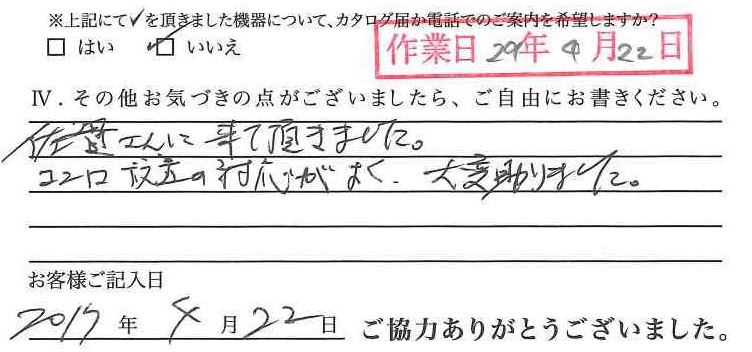 ※上記にて✓を頂きました機器について、カタログ届か電話でのご案内を希望しますか？
□ はい ☑ いいえ
作業日 29年 4月 22日
Ⅳ．その他お気づきの点がございましたら、ご自由にお書きください。
さんに来て頂きました。
コンロ設置の対応がよく、大変助かりました。
お客様ご記入日
2017年 4月22日 ご協力ありがとうございました。